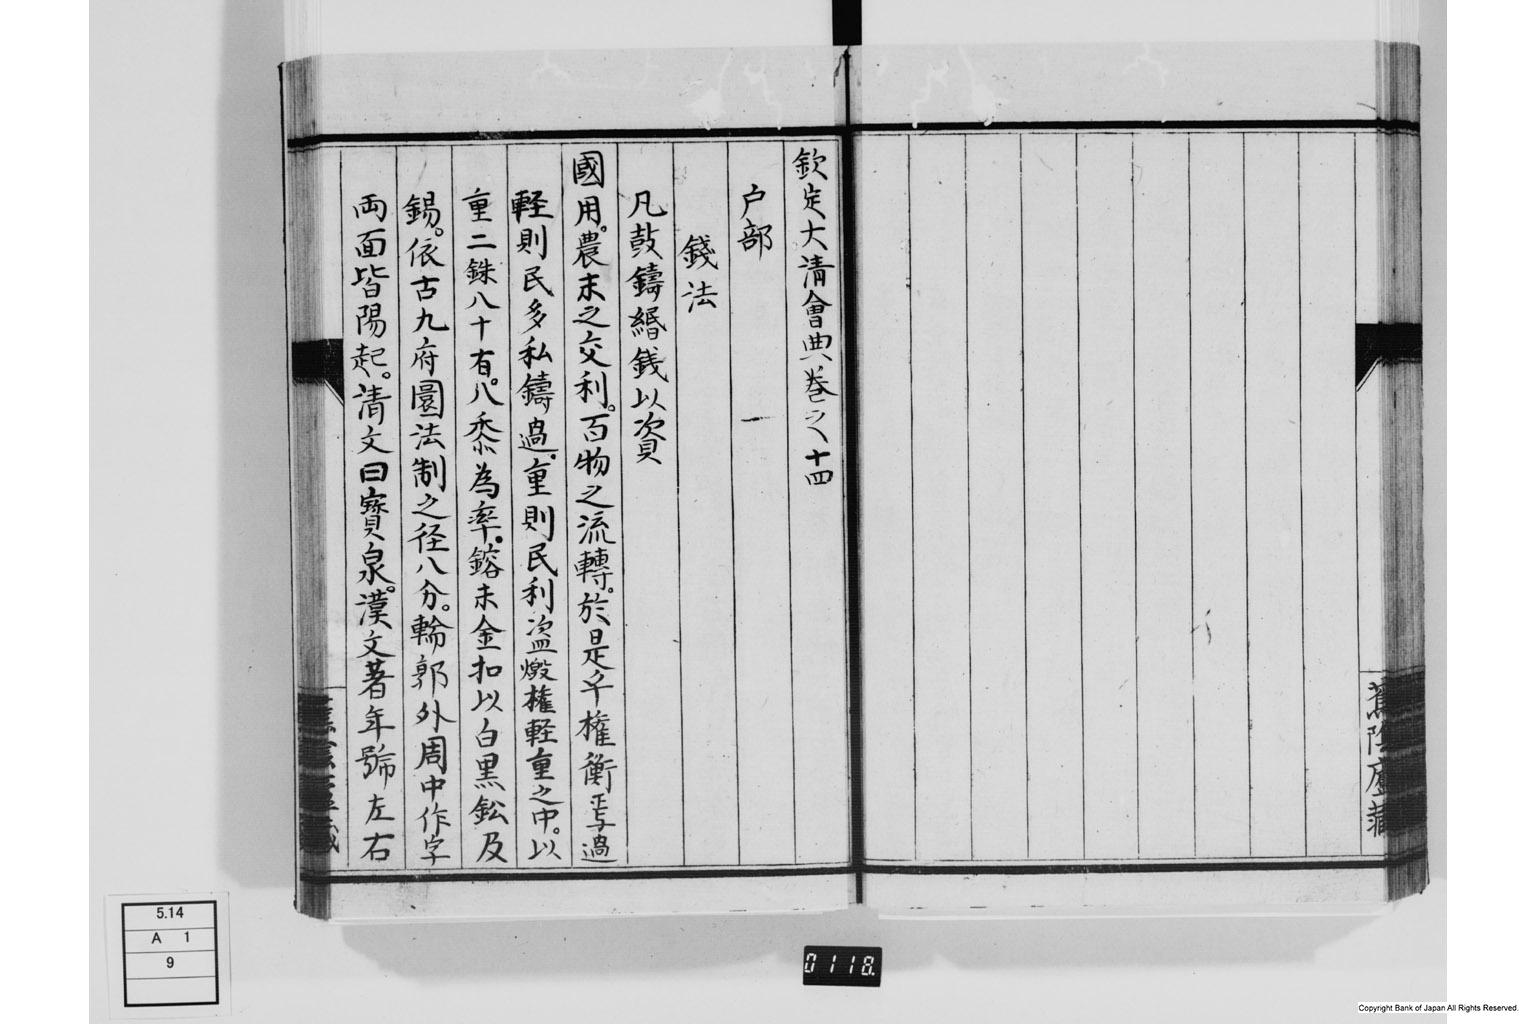 欽定大清會典巻之十四
戸部　一
錢法
凡鼓鑄緡銭以資
國用。農末之交利。百物之流轉。於是乎権衡焉過
軽則民多私鑄過。重則民利盗燬権軽重之中。以
重二銖八十有。八黍為率。鎔未金扣以白黒鈆及
錫。依古九府圜法制之径八分。輪郭外周中作字
両面皆陽起。清文曰寳泉。漢文著年號左右
蕉陰廬藏
5.14
A 1
9
0118.
Copyright Bank of Japan All Rights Reserved.